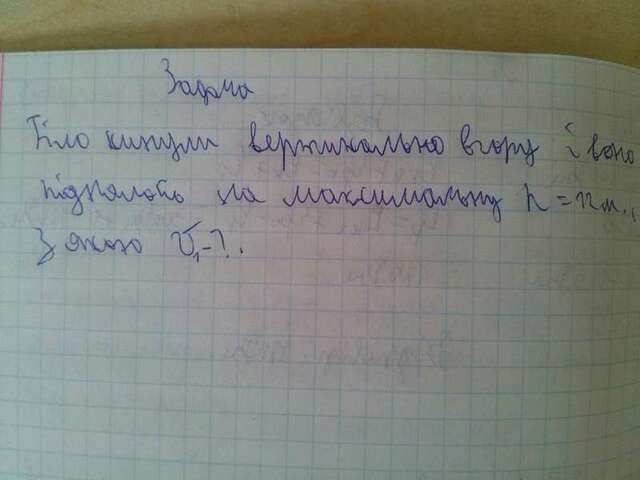 Задача
Тіло кинули вертикально вгору і воно
піднялось на максимальну h = n м.,
З якою V₁-?.